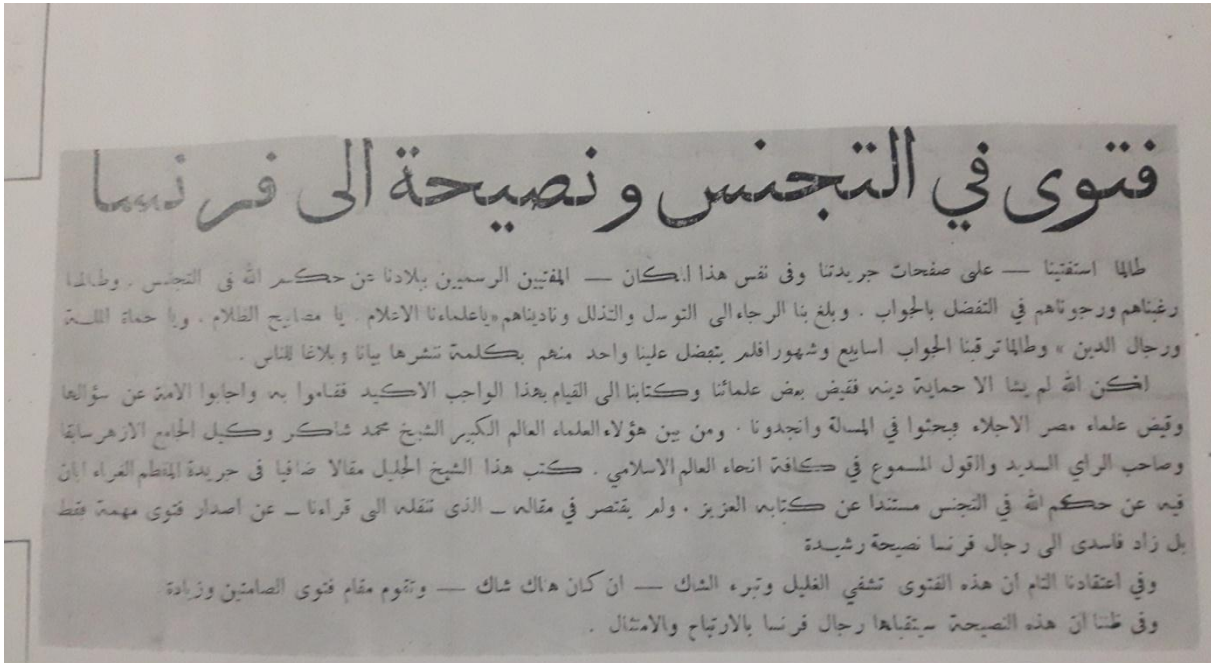 فتوى في التجنس ونصيحة الى فرنسا
طالما استفتينا — على صفحات جريدتنا وفى نفس هذا المكان — المفتيين الرسميين ببلادنا عن حكم الله فى التجنس . وطالما
رغبناهم ورجوناهم في التفضل بالجواب . وبلغ بنا الرجاء الى التوسل والتذلل وناديناهم «ياعلماءنا الاعلام . يا مصابيح الظلام . ويا حماة الملة
ورجال الدين » وطالما ترقبنا الجواب اسابيع وشهورا فلم يتفضل علينا واحد منهم بكلمة ننشرها بيانا وبلاغا للناس .
لكن الله لم يشا الا حماية دينه فقيض بعض علمائنا وكتابنا الى القيام بهذا الواجب الاكيد فقاموا به واجابوا الامة عن سؤالها
وقيض علماء مصر الاجلاء فبحثوا في المسالة وانجدونا . ومن بين هؤلاء العلماء العالم الكبير الشيخ محمد شاكر وكيل الجامع الازهر سابقا
وصاحب الراي السديد والقول المسموع في كافة انحاء العالم الاسلامي . كتب هذا الشيخ الجليل مقالا ضافيا فى جريدة المقطم الغراء ابان
فيه عن حكم الله في التجنس مستندا عن كتابه العزيز . ولم يقتصر في مقاله — الذى ننقله الى قراءنا — عن اصدار فتوى مهمة فقط
بل زاد فاسدى الى رجال فرنسا نصيحة رشيدة
وفي اعتقادنا التام ان هذه الفتوى تشفي الغليل وتبرء الشاك — ان كان هناك شاك — وتقوم مقام فتوى الصامتين وزيادة
وفى ظننا ان هذه النصيحة سيتقبلها رجال فرنسا بالارتياح والامتثال .